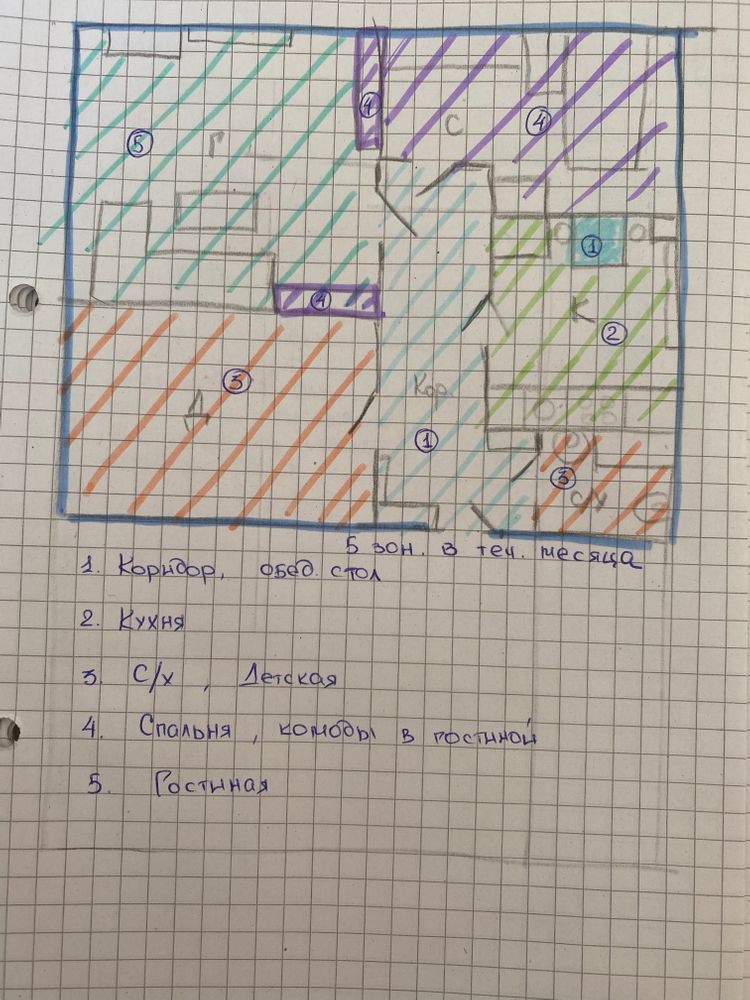 4
5
Г
С
4
1
К
2
4
3
Д
Кор.
1
3
С/У
5 зон. в теч. месяца
1. Коридор, обед. стол
2. Кухня
3. С/х , Детская
4. Спальня , комоды в гостиной
5. Гостиная